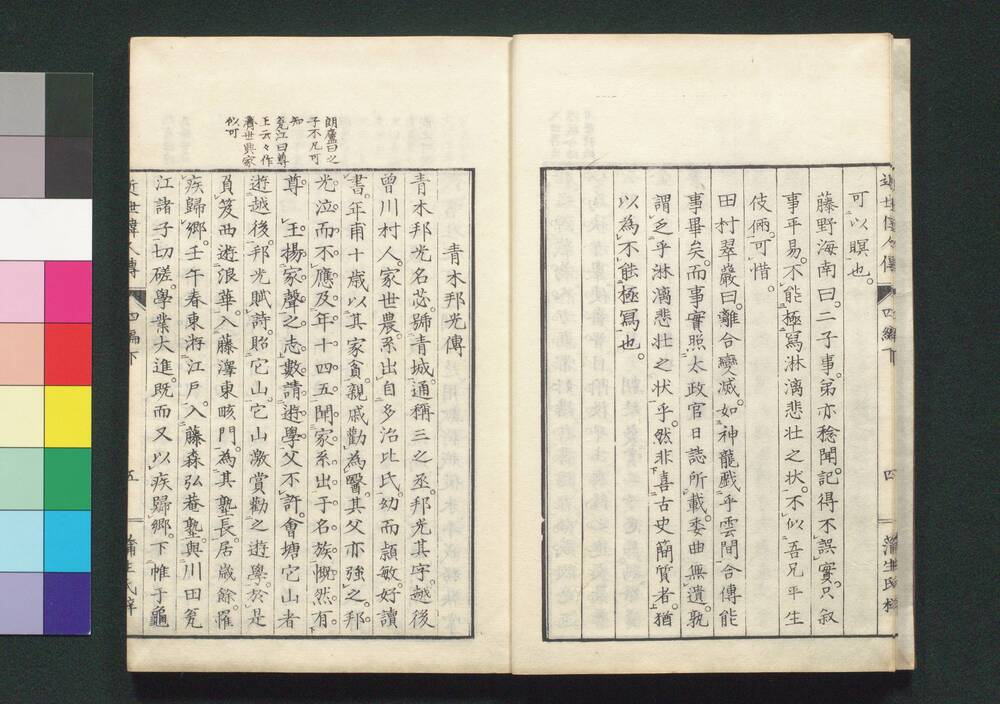 可以瞑也。
藤野海南曰。二子事。弟亦稔聞。記得不誤。實只叙
事平易。不能極寫淋漓悲壯之状。不似吾兄平生
伎倆。可惜。
田村翠巖曰。離合變滅。如神龍戯乎雲間合傳能
事畢矣。而事實照太政官日誌所載。委曲無遺。孰
謂乏乎淋漓悲壯之状乎。然非喜古史簡質者。猶
以為不能極寫也。
四
青木邦光傳
青木邦光名芯。號青城。通稱三之丞。邦光其字。越後
曾川村人。家世農。系出自多治比氏。幼而頴敏。好讀
書。年甫十歳。以其家貧。親戚勸為醫。其父亦強之。邦
光泣而不應。及年十四五。聞家系出于名族。慨然有
尊王揚家聲之志。數請遊學。父不許。會塘它山者
遊越後。邦光賦詩。貽它山。它山激賞勸之遊學。於是
負笈西遊浪華。入藤澤東畡門。為其塾長。居歳餘。罹
疾歸郷。壬午春東游江戸。入藤森弘菴塾。與川田甕
江諸子切磋。學業大進。既而又以疾歸郷。下帷于龜
近世偉人傳 四編下 五
朗廬曰之
子不凡可
知
甕江曰尊
王云々作
舊世興家
似可